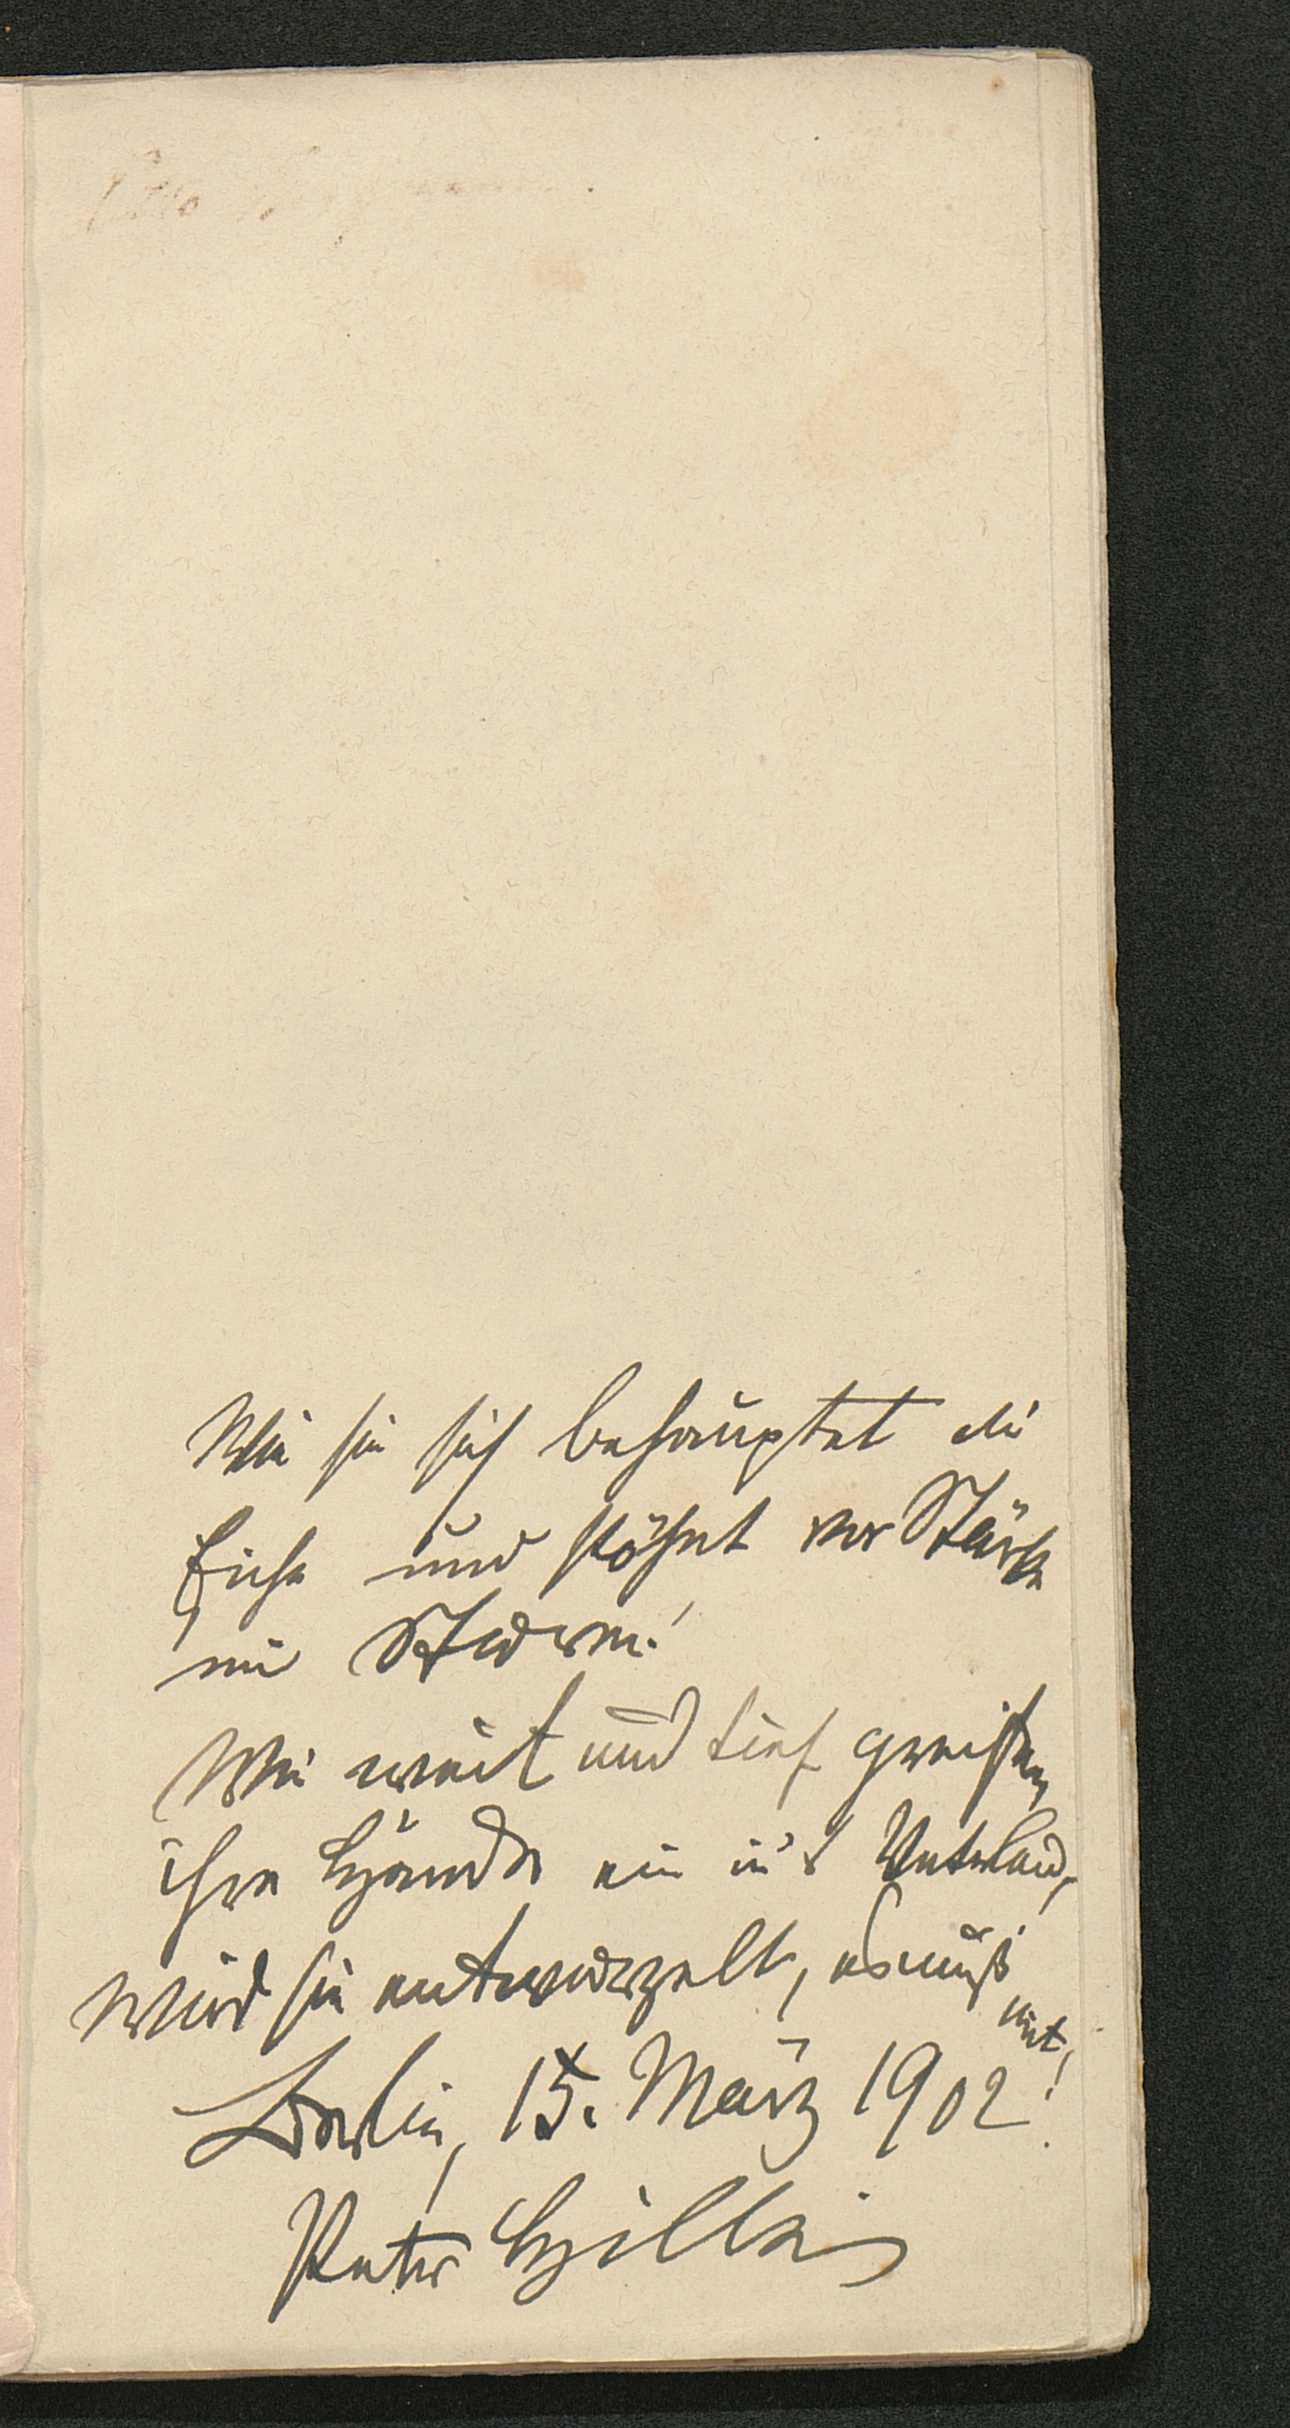 Wie sie sich behauptet die
Eiche und stöhnt vor Stärke
im Sturm!
Wie weit und tief greifen
ihre Hände ein in's Vaterland,
wird sie entwurzelt, es muß
mit!
Berlin, 15. März 1902.
Peter Hille